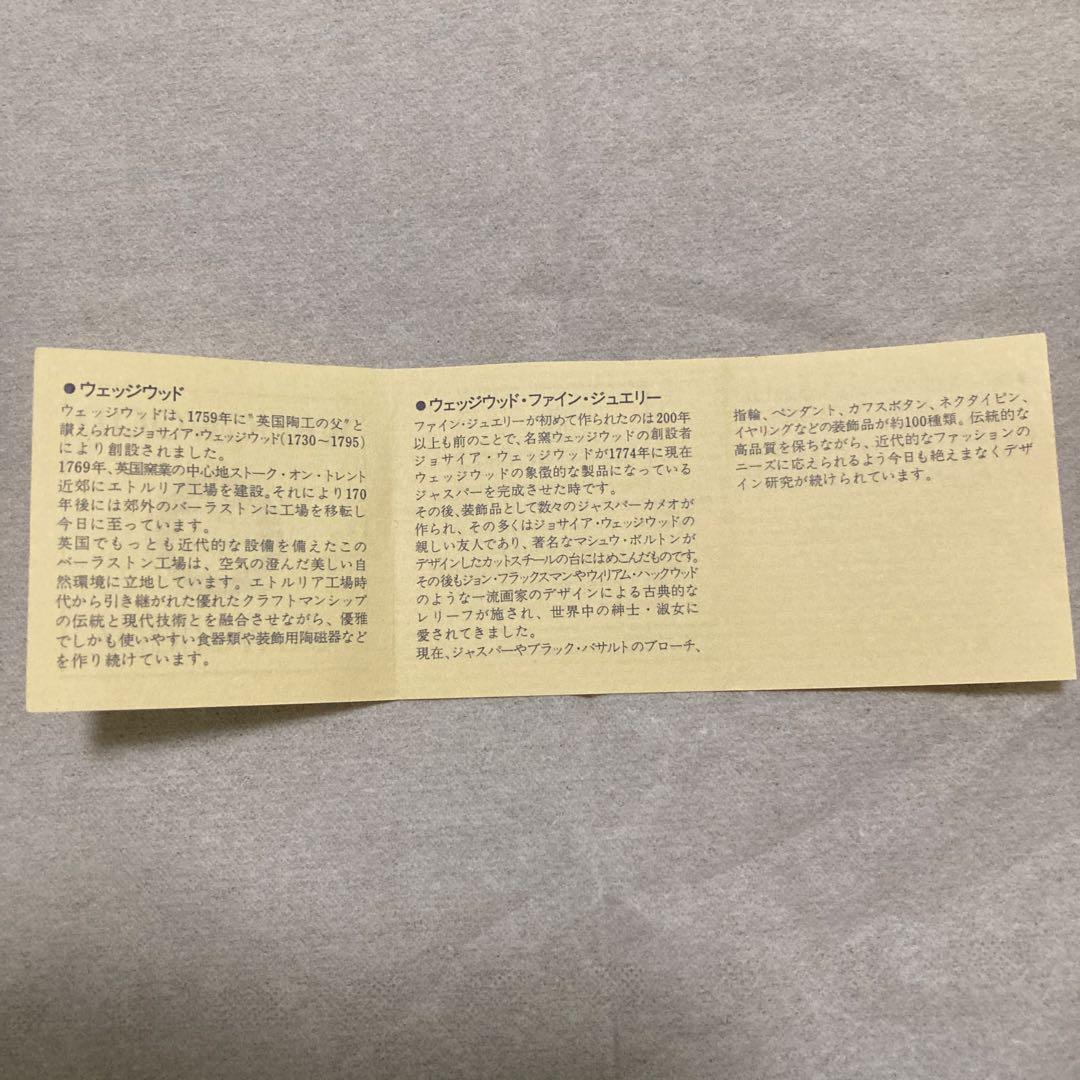 ●ウェッジウッド
ウェッジウッドは、1759年に"英国陶工の父"と
讃えられたジョサイア・ウェッジウッド(1730～1795)
により創設されました。
1769年、英国窯業の中心地ストーク・オン・トレント
近郊にエトルリア工場を建設。それにより170
年後には郊外のバーラストンに工場を移転し
今日に至っています。
英国でもっとも近代的な設備を備えたこの
バーラストン工場は、空気の澄んだ美しい自
然環境に立地しています。エトルリア工場時
代から引き継がれた優れたクラフトマンシップ
の伝統と現代技術とを融合させながら、優雅
でしかも使いやすい食器類や装飾用陶磁器など
を作り続けています。
●ウェッジウッド・ファイン・ジュエリー
ファイン・ジュエリーが初めて作られたのは200年
以上も前のことで、名窯ウェッジウッドの創設者
ジョサイア・ウェッジウッドが1774年に現在
ウェッジウッドの象徴的な製品になっている
ジャスパーを完成させた時です。
その後、装飾品として数々のジャスパーカメオが
作られ、その多くはジョサイア・ウェッジウッドの
親しい友人であり、著名なマシュウ・ボルトンが
デザインしたカットスチールの台にはめこんだものです。
その後もジョン・フラックスマンやウィリアム・ハックウッド
のような一流画家のデザインによる古典的な
レリーフが施され、世界中の紳士・淑女に
愛されてきました。
現在、ジャスパーやブラック・バサルトのブローチ、
指輪、ペンダント、カフスボタン、ネクタイピン、
イヤリングなどの装飾品が約100種類。伝統的な
高品質を保ちながら、近代的なファッションの
ニーズに応えられるよう今日も絶えまなくデザ
イン研究が続けられています。